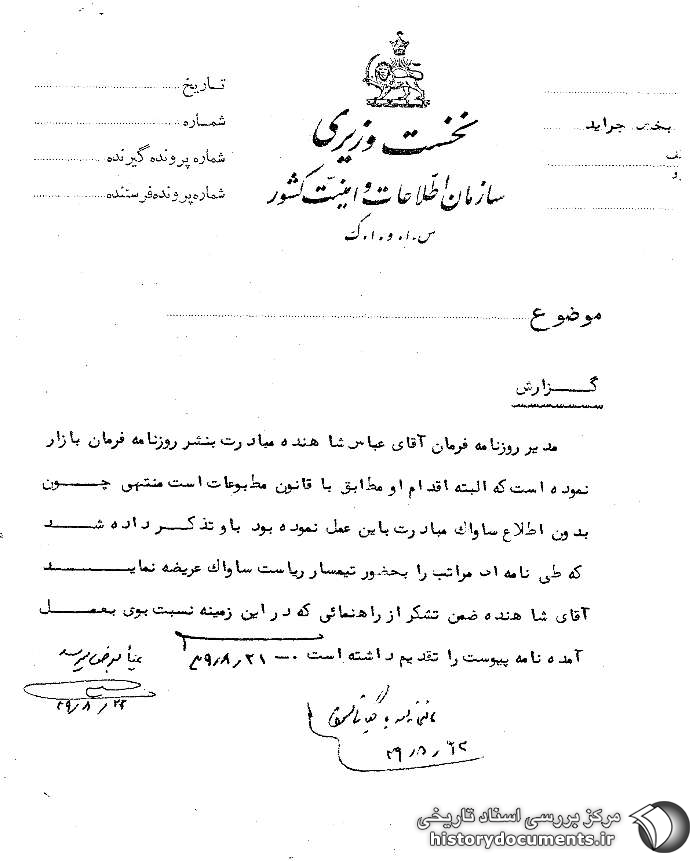 تاریخ
شماره
شماره پرونده گیرنده
شماره پرونده فرستنده
بخش جراید
نخست وزیری
سازمان اطلاعات و امنیت کشور
س.ا.و.ا.ک
موضوع
گـــزارش
مدیر روزنامه فرمان آقای عباس شاهنده مبادرت بنشر روزنامه فرمان بازار
نموده است که البته اقدام او مطابق با قانون مطبوعات است منتهی چـــون
بدون اطلاع ساواك مبادرت باین عمل نموده بود باو تذکـر داده شـــد
که طی نامه ای مراتب را بحضور تیمسار ریاست ساواك عریضه نمایـــد
آقای شاهنده ضمن تشکر از راهنمائی که در این زمینه نسبت بوی بعمـــل
آمده نامه پیوست را تقدیم داشته است ۰ – ۴۹/۸/۲۱
عیناً بعرض میرسد
۴۹/۸/۲۳
مرکز بررسی اسناد تاریخی
historydocuments.ir